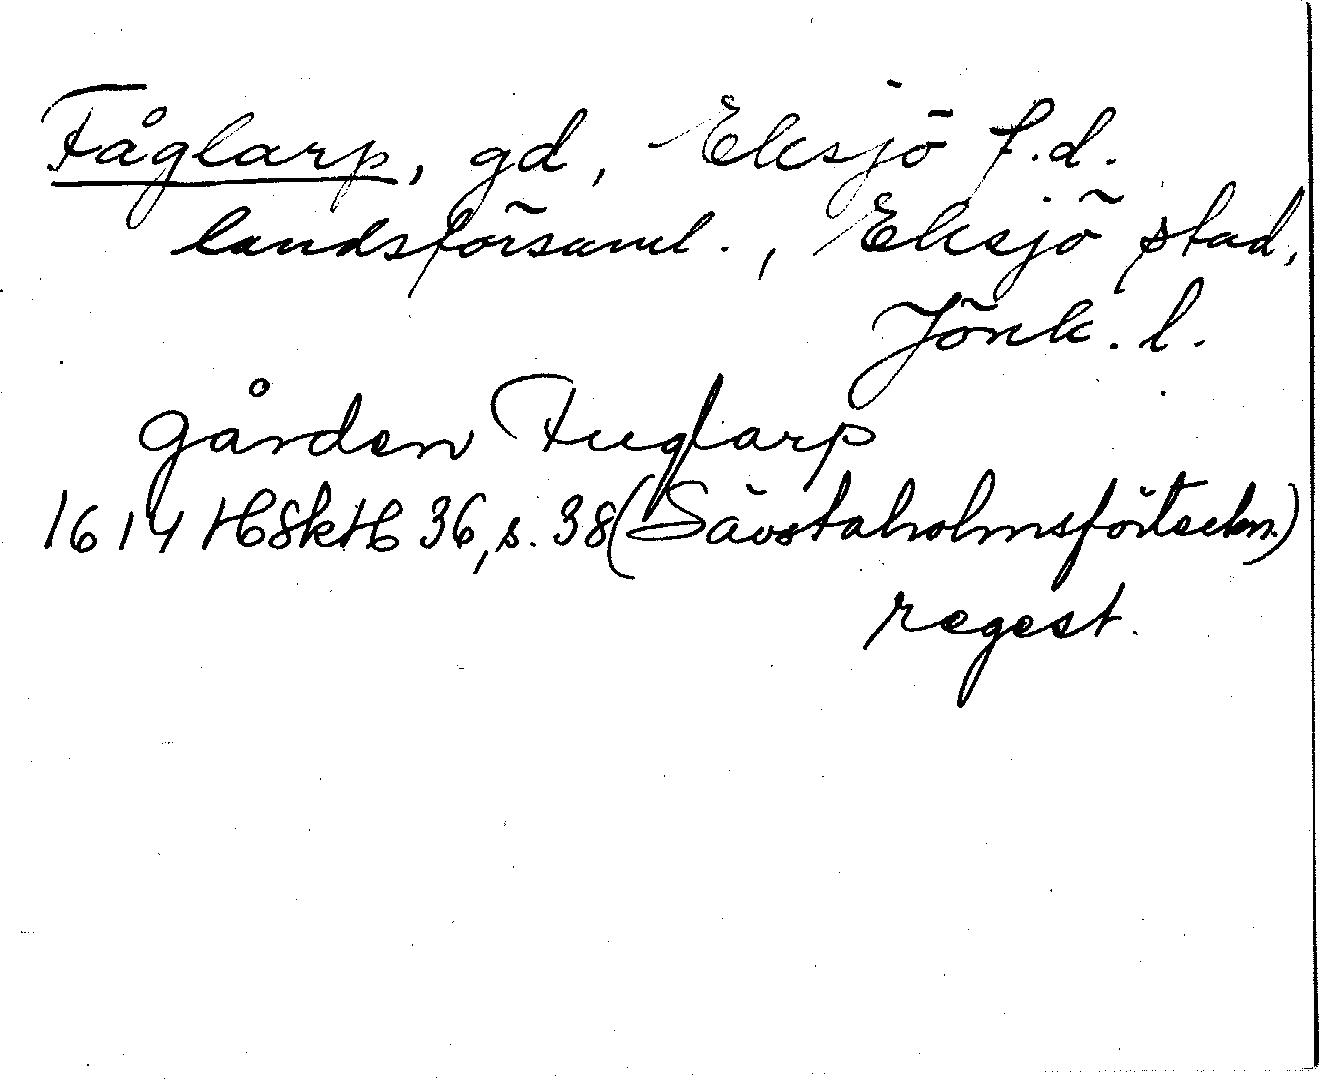 Fåglarp, gd, Eksjö f.d.
landsförsaml., Eksjö stad,
Jönk. l.
gården Fuglarp
1614 HSkH 36, s. 38 (Sävstaholmsförteckn.)
regest.